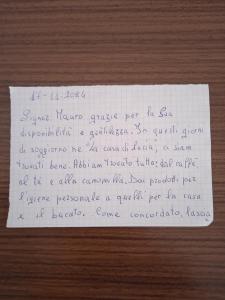 17-11-2024
Signor Mauro, grazie per la Sua
disponibilità e gentilezza. In questi giorni
di soggiorno ne "La casa di Lucia", ci siam
trovati bene. Abbiam trovato tutto: dal caffè,
al tè e alla camomilla. Dai prodotti per
l'igiene personale a quelli per la casa
e il bucato. Come concordato, lascio